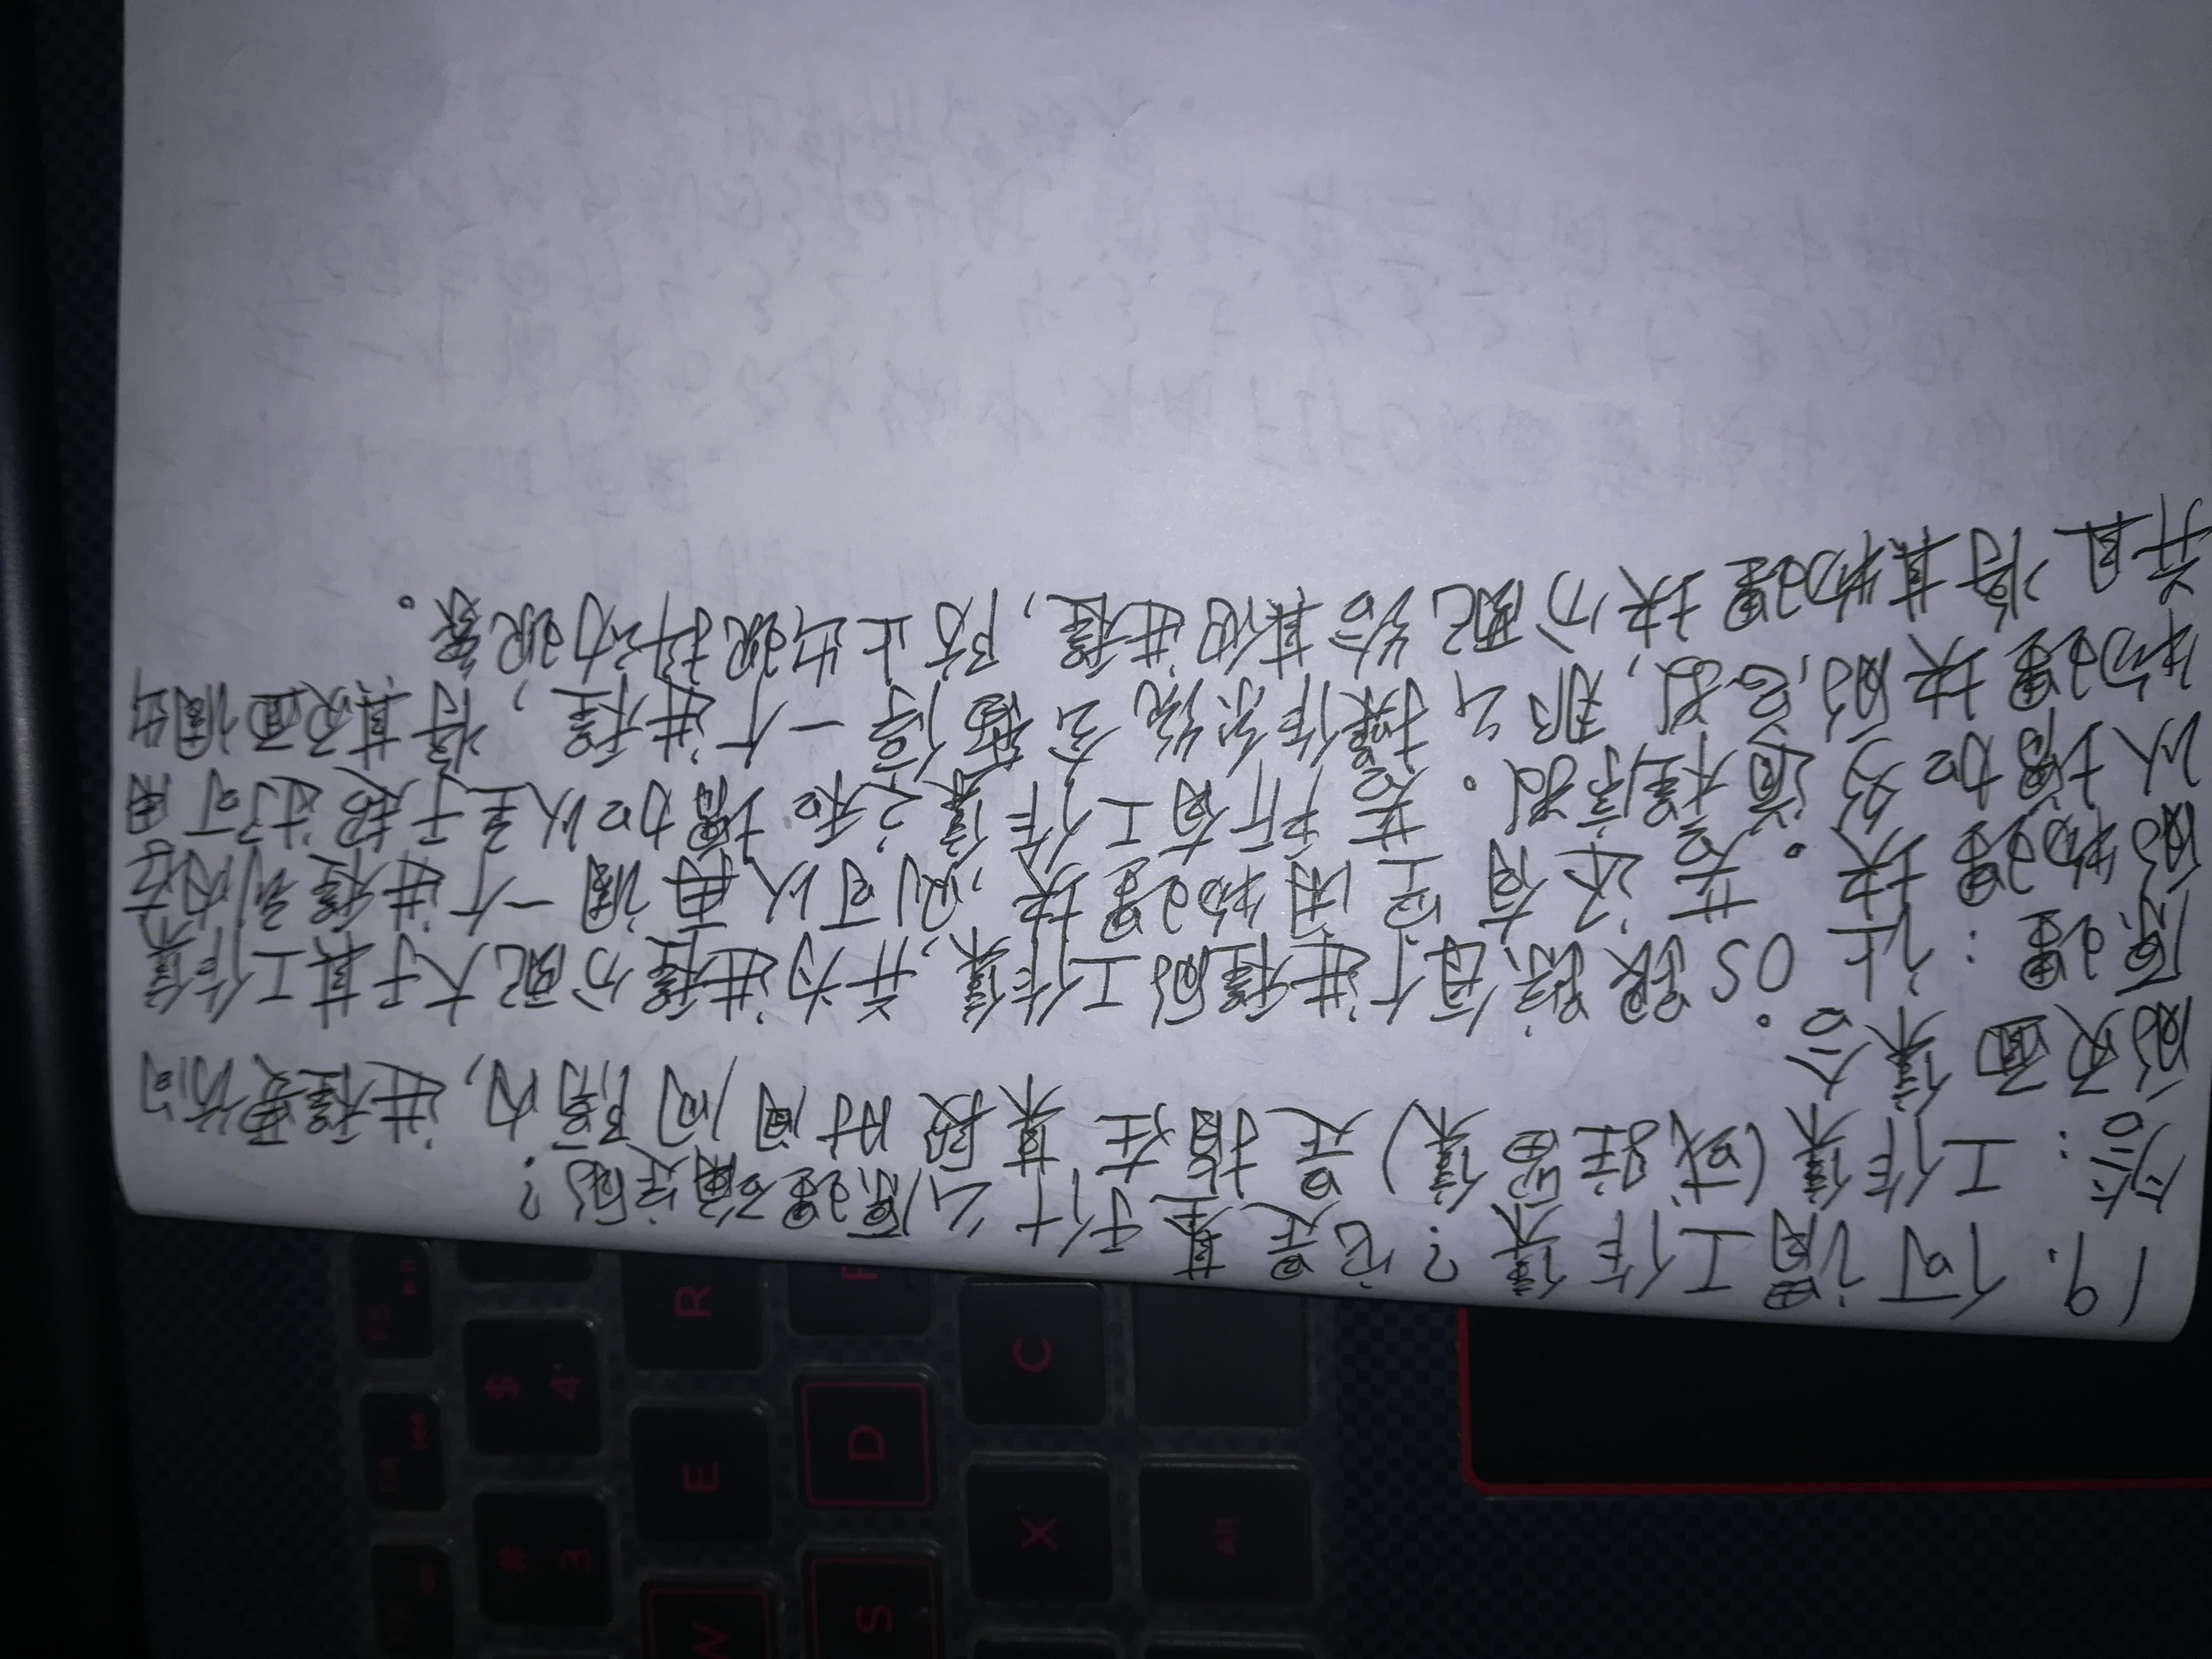 Alt
X
S
W
# 3
D
E
C
$ 4
R
F
19. 何谓工作集?它是基于什么原理确定的?
答:工作集(或驻留集)是指在某段时间间隔内,进程要访问
的页面集合。
原理:让OS跟踪每个进程的工作集,并为进程分配大于其工作集
的物理块。若还有空闲物理块,则可以再调一个进程到内存
以增加多道程序数。若所有工作集之和增加以至于超过了可用
物理块的总数,那么操作系统会暂停一个进程,将其页面调出
并且将其物理块分配给其他进程,防止出现抖动现象。